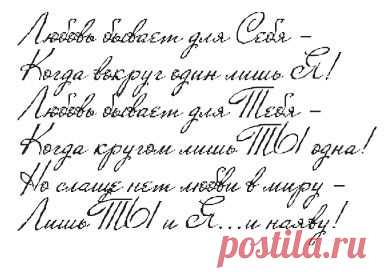 Любовь бывает для Себя –
Когда вокруг один лишь Я!
Любовь бывает для Тебя –
Когда кругом лишь ТЫ одна!
Но слаще нет любви в миру –
Лишь ТЫ и Я...и наяву!
postila.ru